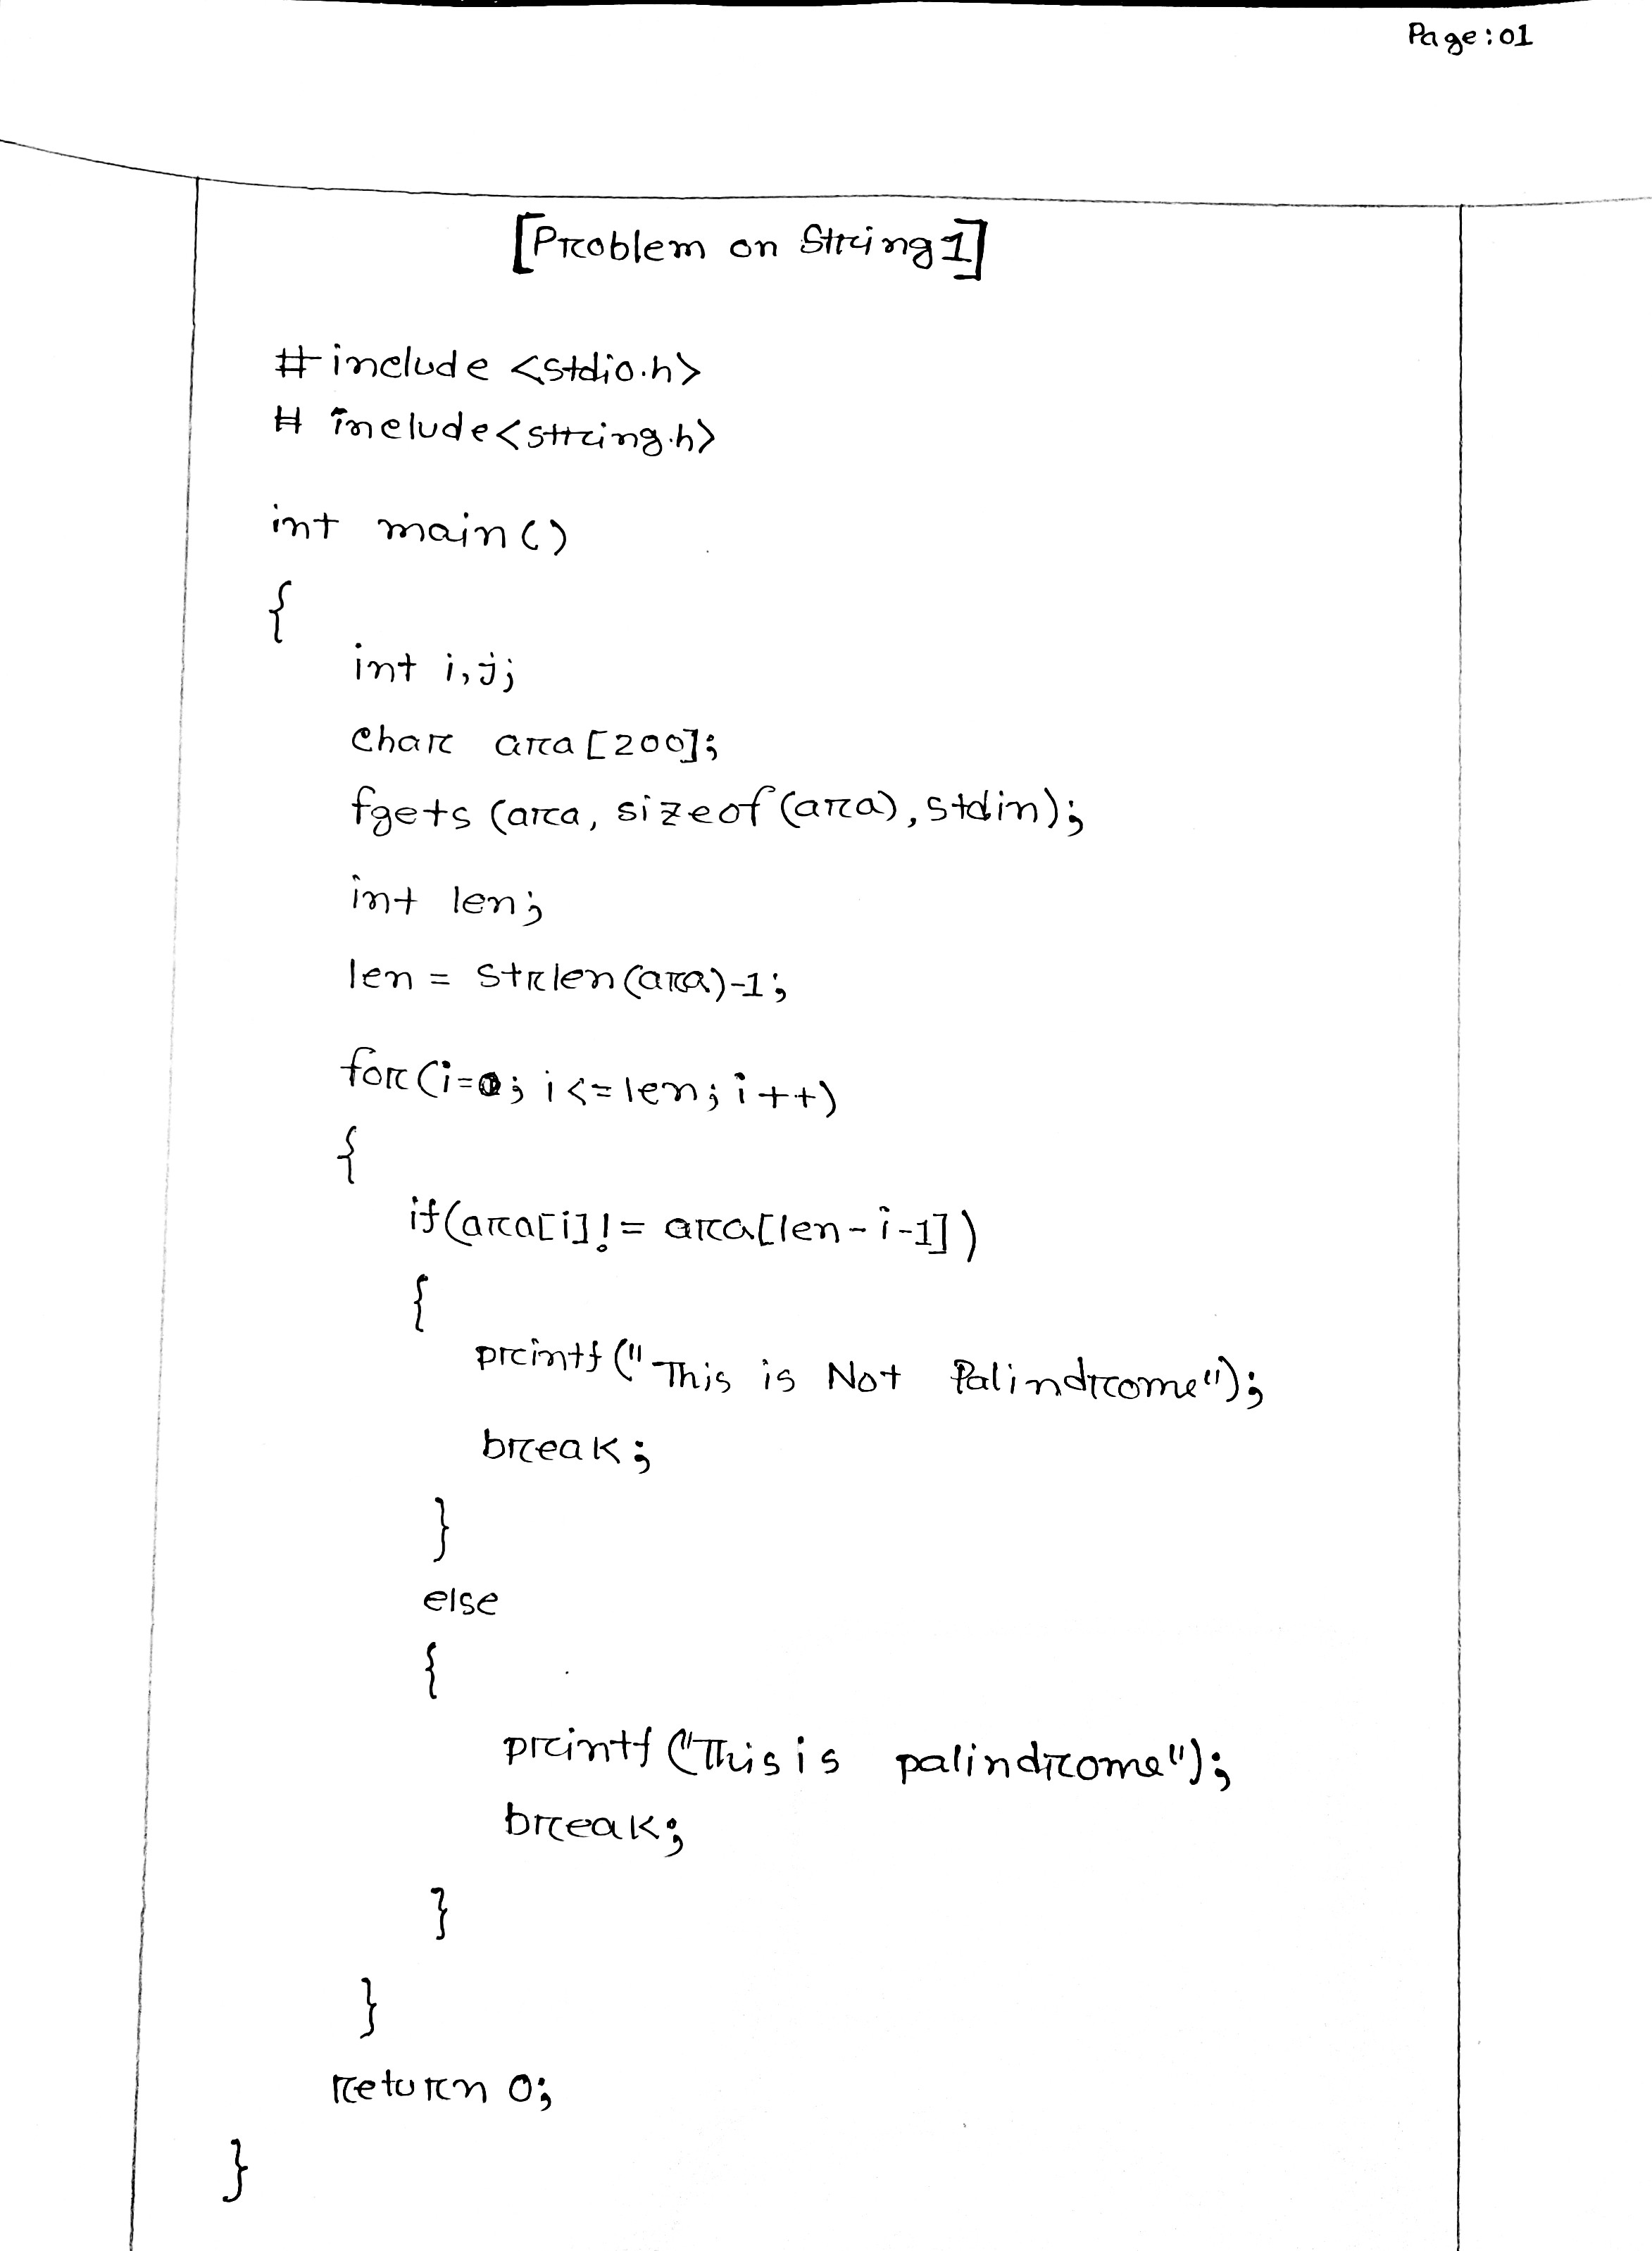 Page:01
[Problem on String 1]
#include <stdio.h>
# include<string.h>
int main()
{
int i,j;
char ara[200];
fgets (ara, sizeof(ara), stdin);
int len;
len = strlen(ara)-1;
for(i=0; i<=len; i++)
{
if(ara[i]!= ara[len-i-1])
{
printf("This is Not Palindrome");
break;
}
else
{
printf("This is palindrome");
break;
}
}
return 0;
}